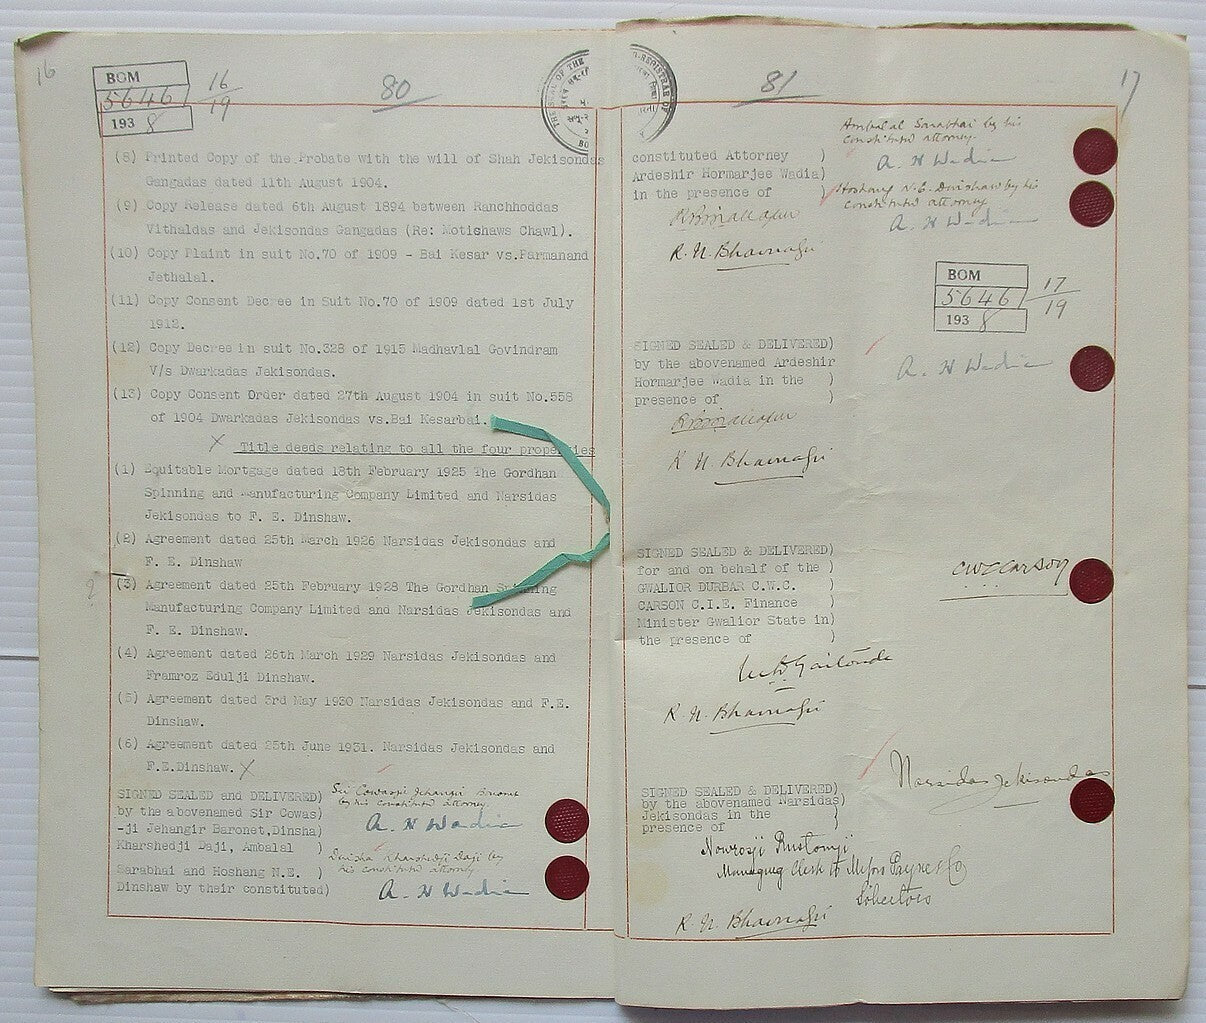 16
BOM
5646
193 8
16
19
80
(8) Printed Copy of the Probate with the will of Shah Jekisondas
Gangadas dated 11th August 1904.
(9) Copy Release dated 6th August 1894 between Ranchhoddas
Vithaldas and Jekisondas Gangadas (Re: Motishaws Chawl).
(10) Copy Plaint in suit No.70 of 1909 - Bai Kesar vs.Parmanand
Jethalal.
(11) Copy Consent Decree in Suit No.70 of 1909 dated 1st July
1912.
(12) Copy Decree in suit No.328 of 1915 Madhavlal Govindram
V/s Dwarkadas Jekisondas.
(13) Copy Consent Order dated 27th August 1904 in suit No.558
of 1904 Dwarkadas Jekisondas vs.Bai Kesarbai.
X Title deeds relating to all the four properties
(1) Equitable Mortgage dated 18th February 1925 The Gordhan
Spinning and Manufacturing Company Limited and Narsidas
Jekisondas to F. E. Dinshaw.
(2) Agreement dated 25th March 1926 Narsidas Jekisondas and
F. E. Dinshaw
? (3) Agreement dated 25th February 1928 The Gordhan Spinning
Manufacturing Company Limited and Narsidas Jekisondas and
F. E. Dinshaw.
(4) Agreement dated 26th March 1929 Narsidas Jekisondas and
Framroz Edulji Dinshaw.
(5) Agreement dated 3rd May 1930 Narsidas Jekisondas and F.E.
Dinshaw.
(6) Agreement dated 25th June 1931. Narsidas Jekisondas and
F.E.Dinshaw. X
SIGNED SEALED and DELIVERED)
by the abovenamed Sir Cowas)
-ji Jehangir Baronet,Dinsha)
Kharshedji Daji, Ambalal )
Sarabhai and Hoshang N.E. )
Dinshaw by their constituted)
Sir Cowasji Jehangir Baronet
by his constituted attorney
A. H Wadia
Dinsha Kharshedji Daji by
his constituted attorney
A. H Wadia
THE SEAL OF THE
REGISTRAR OF
81
17
constituted Attorney )
Ardeshir Hormarjee Wadia)
in the presence of )
Ambalal Sarabhai by his
constituted attorney
A. H Wadia
Hoshang N. E. Dinshaw by his
constituted attorney
A. H Wadia
R. N. Bhavnagri
BOM
5646
193 8
17
19
SIGNED SEALED & DELIVERED)
by the abovenamed Ardeshir
Hormarjee Wadia in the )
presence of )
A. H Wadia
R. N. Bhavnagri
SIGNED SEALED & DELIVERED)
for and on behalf of the )
GWALIOR DURBAR C.W.C. )
CARSON C.I.E. Finance )
Minister Gwalior State in)
the presence of )
CWC Carson
R. N. Bhavnagri
SIGNED SEALED & DELIVERED)
by the abovenamed Narsidas)
Jekisondas in the )
presence of )
Narsidas Jekisondas
Nowrosji Rustomji
Managing Clerk to Messrs Payne & Co
Solicitors
R. N. Bhavnagri